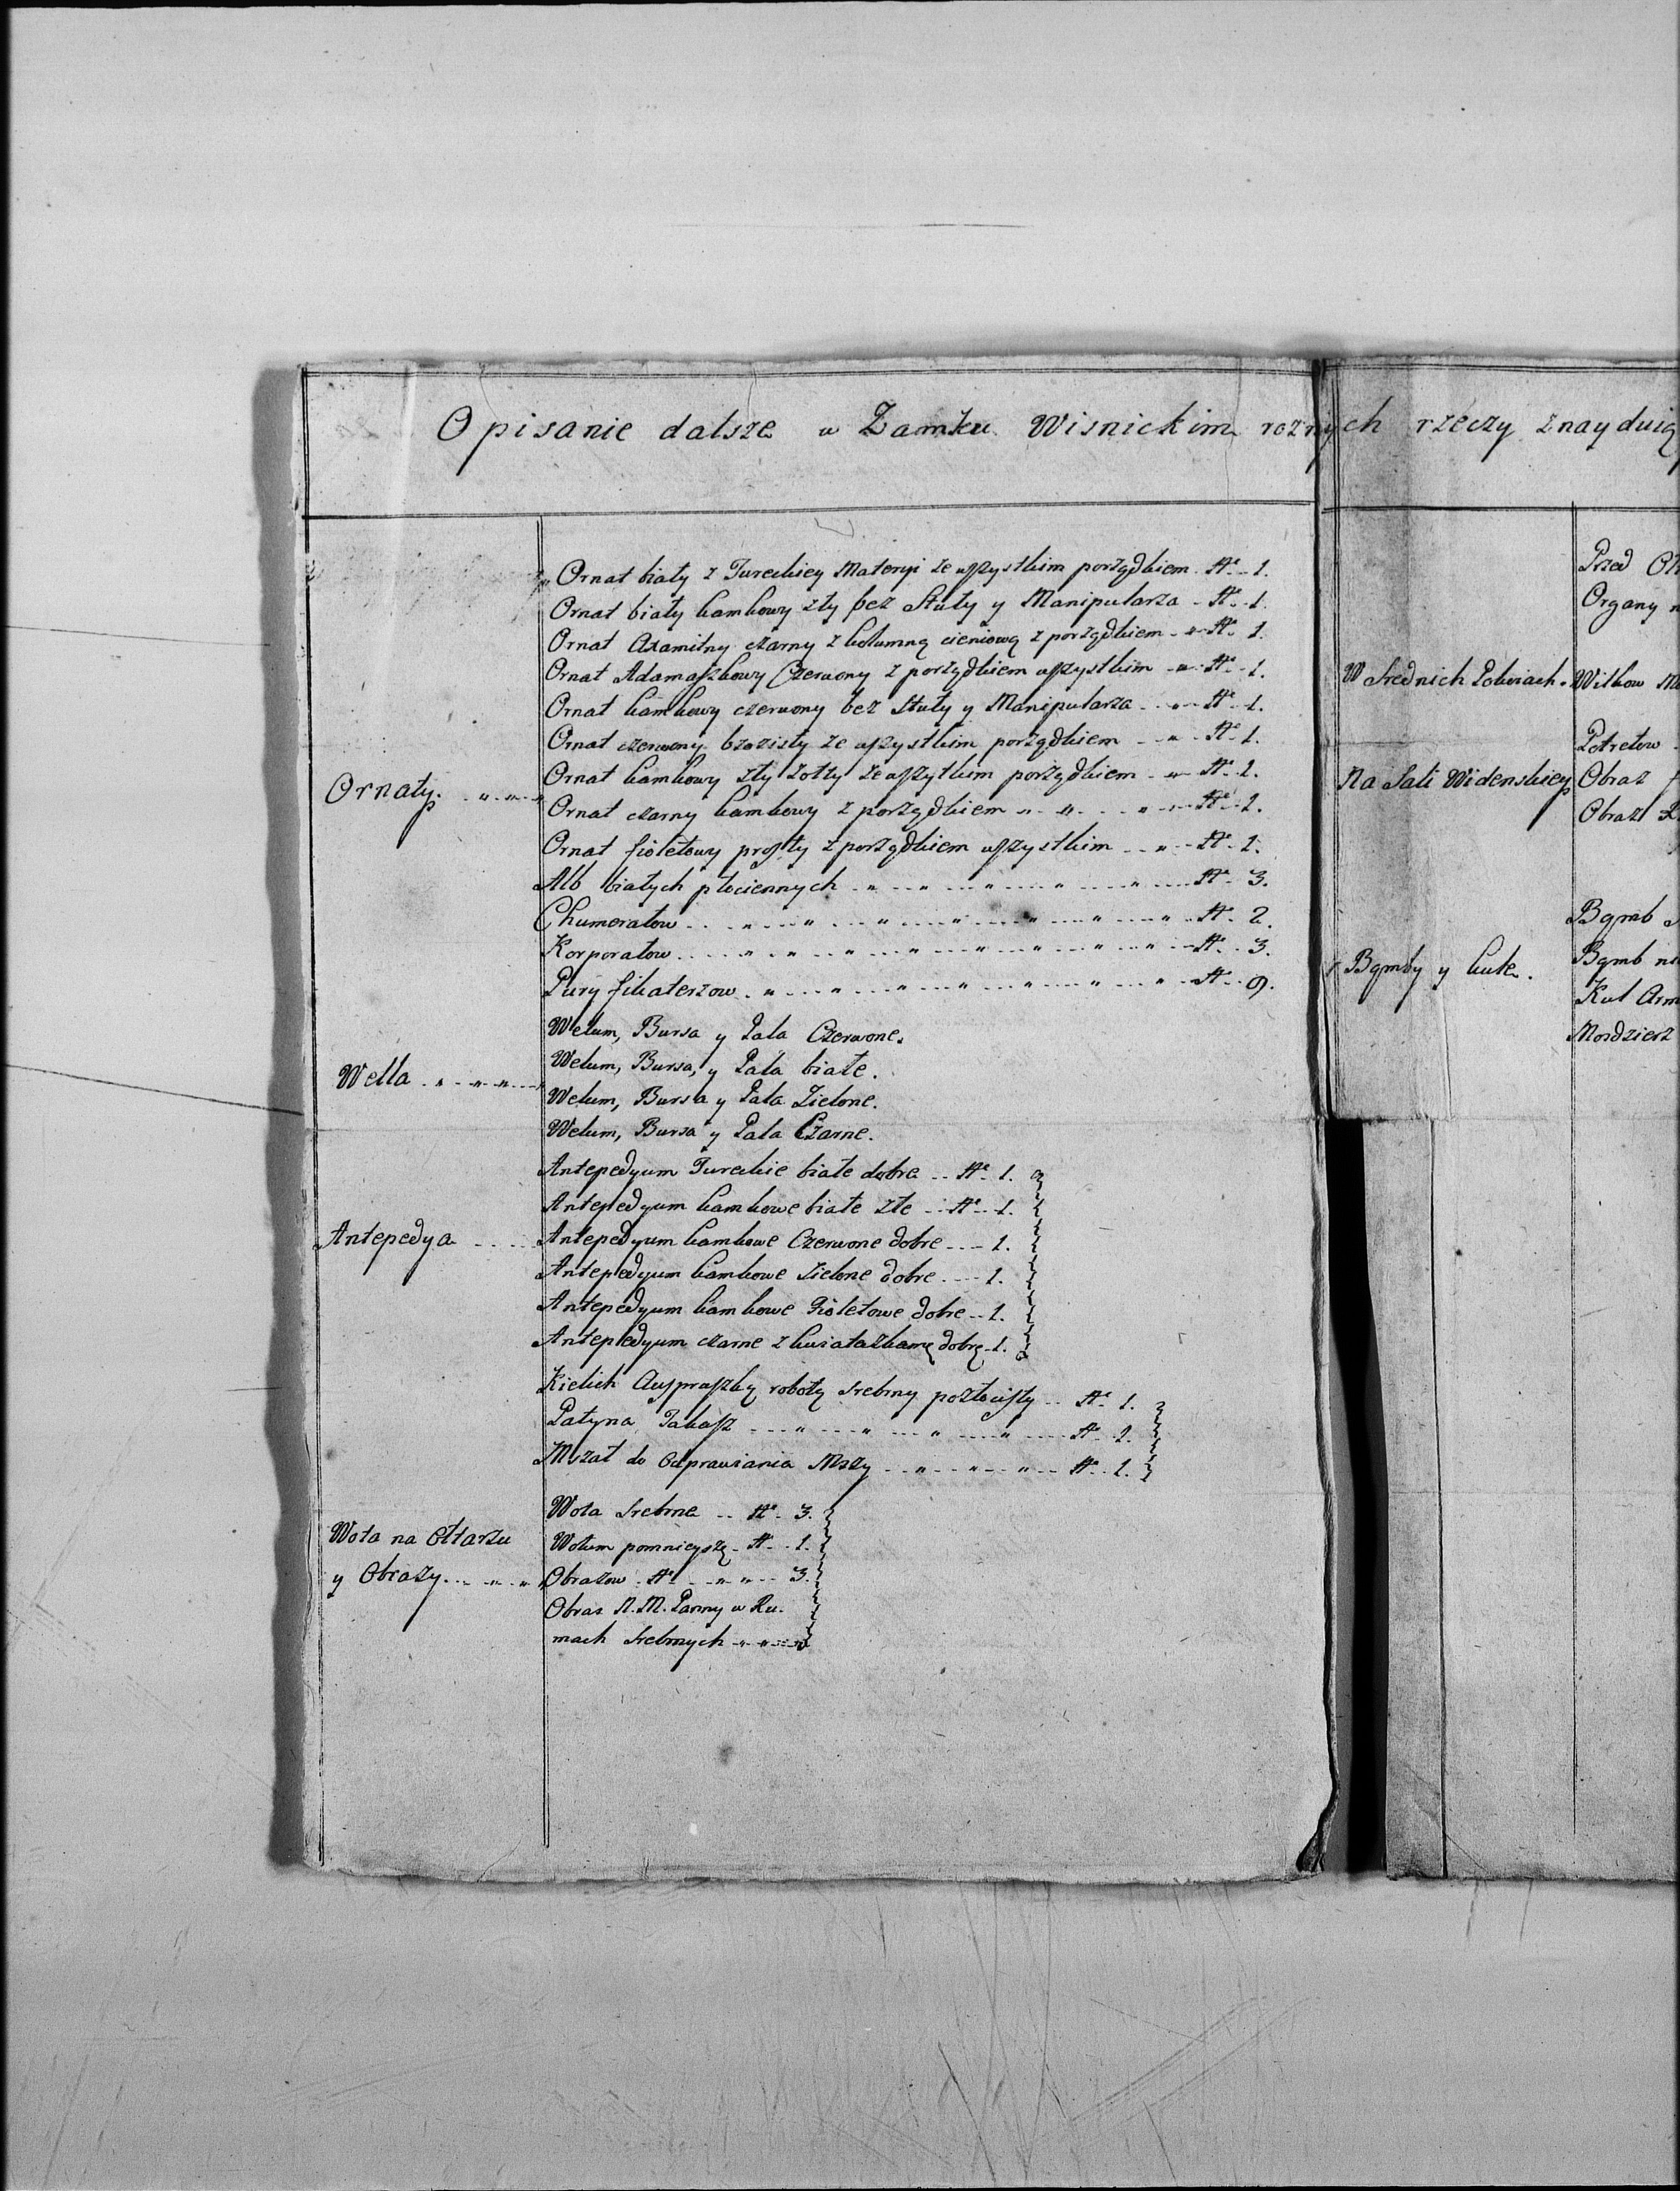 Opisanie dalsze w Zamku Wisnickim roznych rzeczy znayduią
Ornat biały z Tureckiey Materyi ze wszystkim porządkiem № 1.
Ornat biały kamkowy zły bez Stuły y Manipularza № 1.
Ornat Axamitny czarny z kolumną cieniową z porządkiem № 1.
Ornat Adamaszkowy Czerwony z porządkiem wszystkim № 1.
Ornat kamkowy czerwony bez Stuły y Manipularza № 1.
Ornat czerwony ze wszystkim porządkiem № 1.
Ornat kamkowy zły żołty ze wszytkim porządkiem № 1.
Ornaty
Ornat czarny kamkowy z porządkiem № 1.
Ornat fioletowy prosty z porządkiem wszystkim № 1.
Alb białych płociennych № 3.
Chumerałow № 2.
Korporałow № 3.
Pury fikaterzow № 9.
Welum, Bursa y Pala Czerwone.
Wella
Welum, Bursa, y Pala białe.
Welum, Bursa y Pala Zielone.
Welum, Bursa y Pala Czarne.
Antepedyum Tureckie białe dobre № 1.
Antepedyum kamkowe białe złe № 1.
Antepedya
Antepedyum kamkowe Czerwone dobre 1.
Antepedyum kamkowe zielone dobre 1.
Antepedyum kamkowe Fioletowe dobre 1.
Antepedyum czarne z kwiatazkamę dobrę 1.
Kielich roboty srebrny pozłocisty № 1.
Patyna Takasz № 1.
Mszał do Odprawiania Mszy № 1.
Wota srebrne № 3.
Wota na Ołtarzu
Wotum pomnieyszę № 1.
y Obrazy
Obrazow № 3.
Obraz N. M. Panny w Ra-
mach srebrnych
Przed
Organy
W Srednich Pokoiach
Witkow
Potretow
Na Sali Widenskiey
Obraz
Obraz
Bąmb
Bąmby y kule.
Bąmb
Kul Arm
Mozdzierz